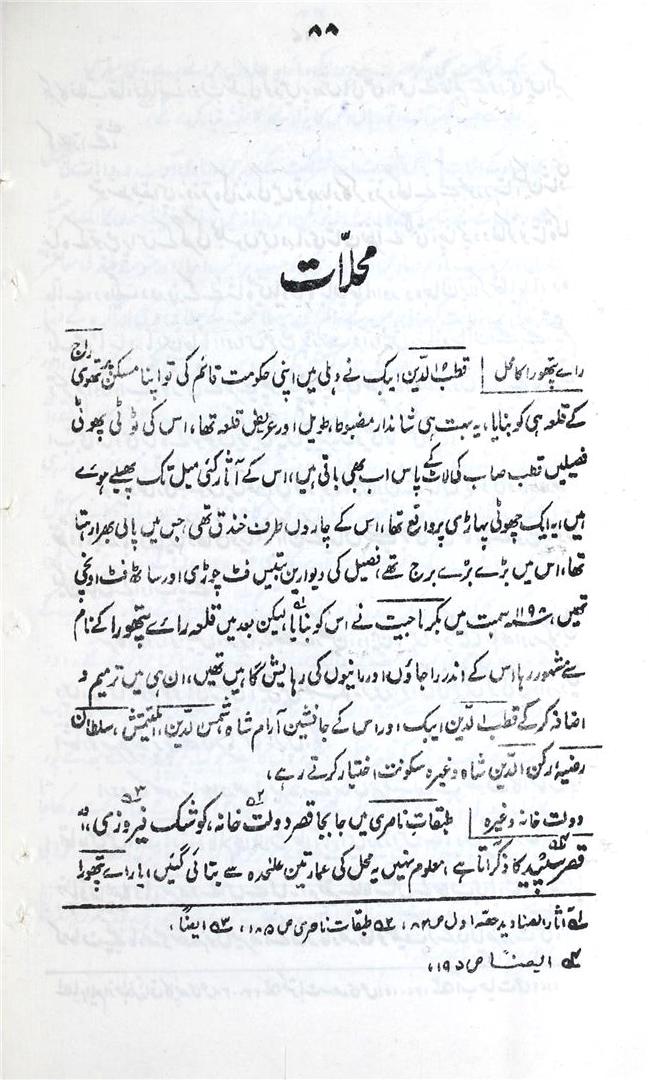 ۸۸
محلّات
راے پتھورا کا محل | قطب الدّین ایبک نے دہلی میں اپنی حکومت قائم کی تو اپنا مسکن پرتھوی راج
کے قلعہ ہی کو بنایا، یہ بہت ہی شاندار مضبوط، طویل اور عریض قلعہ تھا، اس کی ٹوٹی پھوٹی
فصیلیں قطب صاب کی لاٹ کے پاس اب بھی باقی ہیں، اس کے آثار کئی میل تک پھیلے ہوے
ہیں، یہ ایک چھوٹی پہاڑی پر واقع تھا، اس کے چاروں طرف خندق تھی، جس میں پانی بھرا رہتا
تھا، اس میں بڑے بڑے برج تھے، فصیل کی دیواریں تیس فٹ چوڑی اور ساٹھ فٹ اونچی
تھیں، ۱۱۹۸ سمبت میں بکرماجیت نے اس کو بنایا، لیکن بعد میں قلعہ راے پتھورا کے نام
سے مشہور رہا، اس کے اندر راجاؤں اور رانیوں کی رہایش گاہیں تھیں، ان ہی میں ترمیم و
اضافہ کر کے قطب الدّین ایبک اور اس کے جانشین آرام شاہ، شمس الدّین، التمیش، سلطان
رضیہ، رکن الدّین شاہ وغیرہ سکونت اختیار کرتے رہے،
دولت خانہ وغیرہ | طبقات ناصری میں جا بجا قصر دولت خانہ، کوشک فیروزی، اور
قصر سپید کا ذکر آتا ہے، معلوم نہیں یہ محل کی عمارتیں علٰحدہ سے بنائی گئیں، یا راے پتھورا
لہ آثار الصنادید حصّہ اول ص ۸۳، ۲ہ طبقات ناصری ص ۱۸۵، ۳ہ ایضاً،
۴ہ ایضاً ص ۱۹۵،